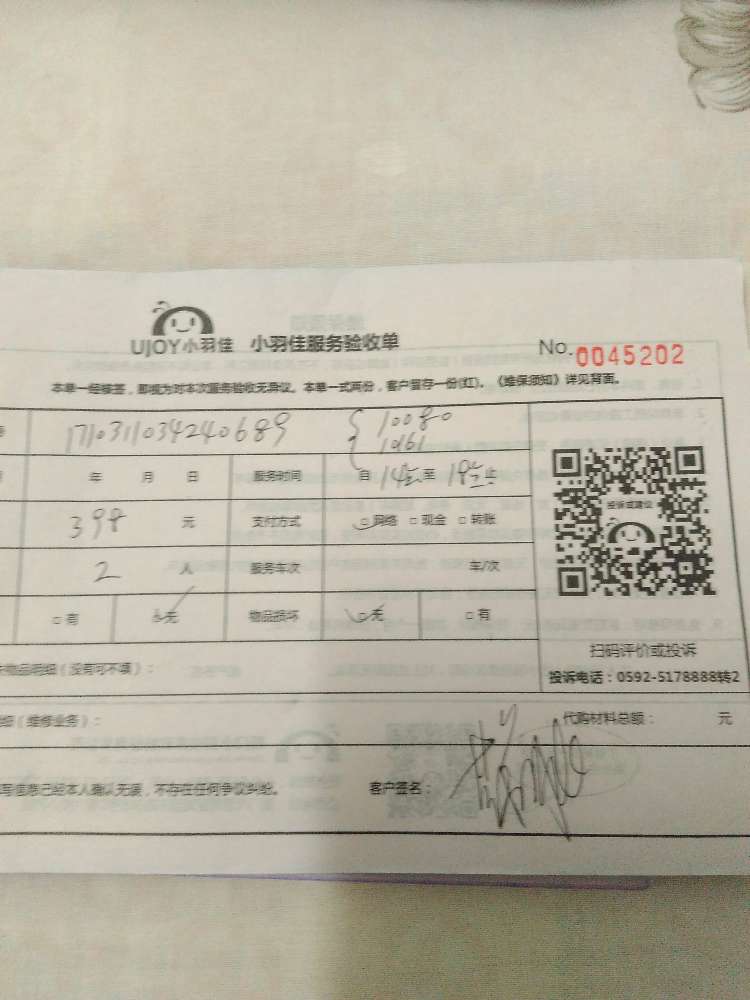 UJOY小羽佳 小羽佳服务验收单 No.0045202
本单一经接签，即视为对本次服务验收无异议。本单一式两份，客户留存一份(红)。《维保须知》详见背面。
1710311034240689 10080
1061
年 月 日 服务时间 自 14 至 18 止
398 元 支付方式 网络 □ 现金 □ 转账
投诉或建议
2 人 服务车次 车/次
□ 有 无 物品损坏 无 □ 有
扫码评价或投诉
物品明细（没有可不填）：
投诉电话：0592-5178888转2
细（维修业务）： 代购材料总额： 元
写信息已经本人确认无误，不存在任何争议纠纷。 客户签名：